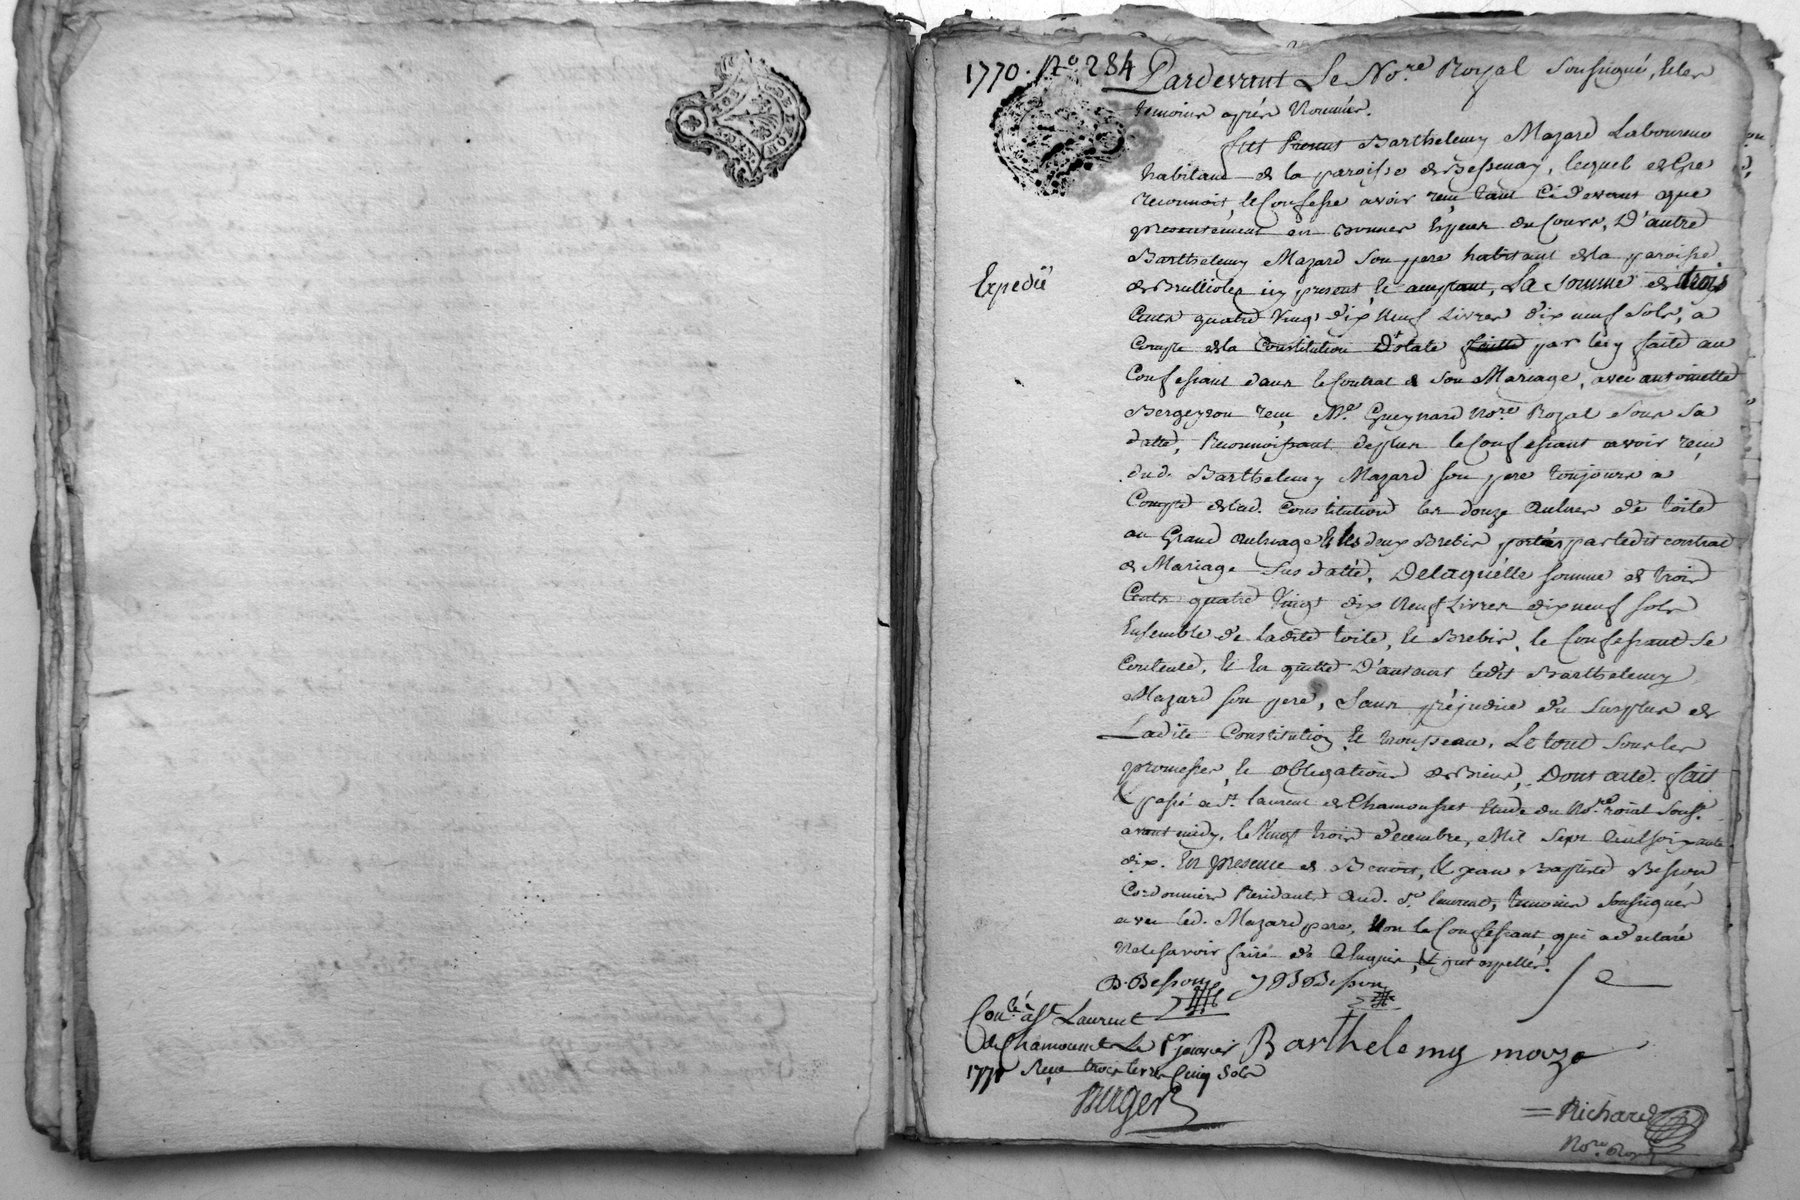 1770. No 284
Pardevant Le No.re Royal Soussigné, et les
temoins après Nommés.
fut Present Barthelemy Mazard Laboureur
habitant de la paroisse de Bessenay, lequel de Gré
reconnoit, et Confesse avoir reçu tant Cidevant que
presentement en bonnes Especes du Cours, D'autre
Barthelemy Mazard Son pere habitant de la paroisse
de Brullioles icy present, et acceptant, La somme de trois
Cents quatre Vingt dix Neuf Livres dix neuf Sols, a
Compte de la Constitution Dotale par luy faite au
Confessant dans le Contrat de Son Mariage, avec antoinette
Bergeron reçu Me. Guynard No.re Royal Sous Sa
datte, Reconnoissant deplus le Confessant avoir reçu
dud. Barthelemy Mazard son pere toujours a
Compte de lad. Constitution les douze Aulnes de toile
au Grand Aulnage et les deux Brebis portés par ledit contrat
de Mariage Sus datté, De laquelle somme de trois
Cents quatre Vingt dix Neuf Livres dix neuf sols
Ensemble de ladite toile, et Brebis, le Confessant se
Contente, et En quitte D'autant ledit Barthelemy
Mazard son pere, Sans préjudice du Surplus de
Ladite Constitution et trousseau. Le tout Sous les
promesses, et obligations de Biens, Dont acte. fait
et passé a St. Laurent de Chamousset Etude du No.re royal Souss.é
avant midy, le Vingt trois decembre, Mil Sept Cent soixante
dix. En presence de Benoit, et Jean Baptiste Besson
Cordonniers Residants Aud. St. Laurent, temoins Soussignés
avec led. Mazard pere, Non le Confessant qui a declaré
Ne le savoir faire de Ce Enquis, et
B. Besson J B Besson
Expedié
Con.lé à St Laurent
de Chamousset Le 1er janvier
1771 Reçu trois livres Cinq Sols
Barthelemy maza
= Richard
No.re Roy.